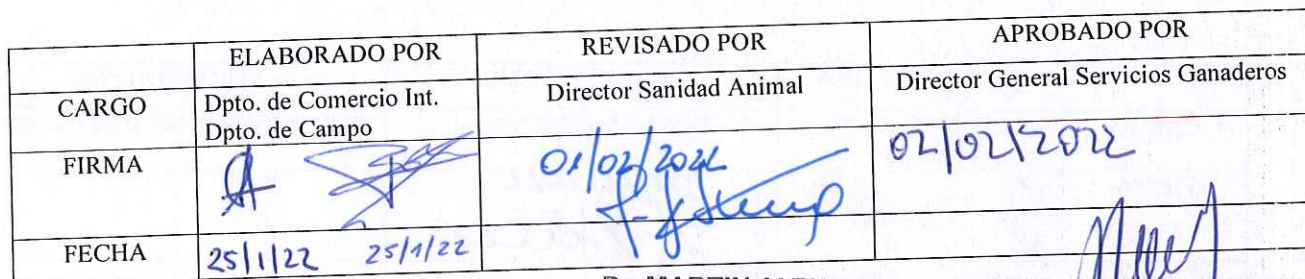 ELABORADO POR REVISADO POR APROBADO POR
CARGO Dpto. de Comercio Int. Director Sanidad Animal Director General Servicios Ganaderos
Dpto. de Campo
FIRMA 01/02/2022 02/02/2022
FECHA 25/1/22 25/1/22